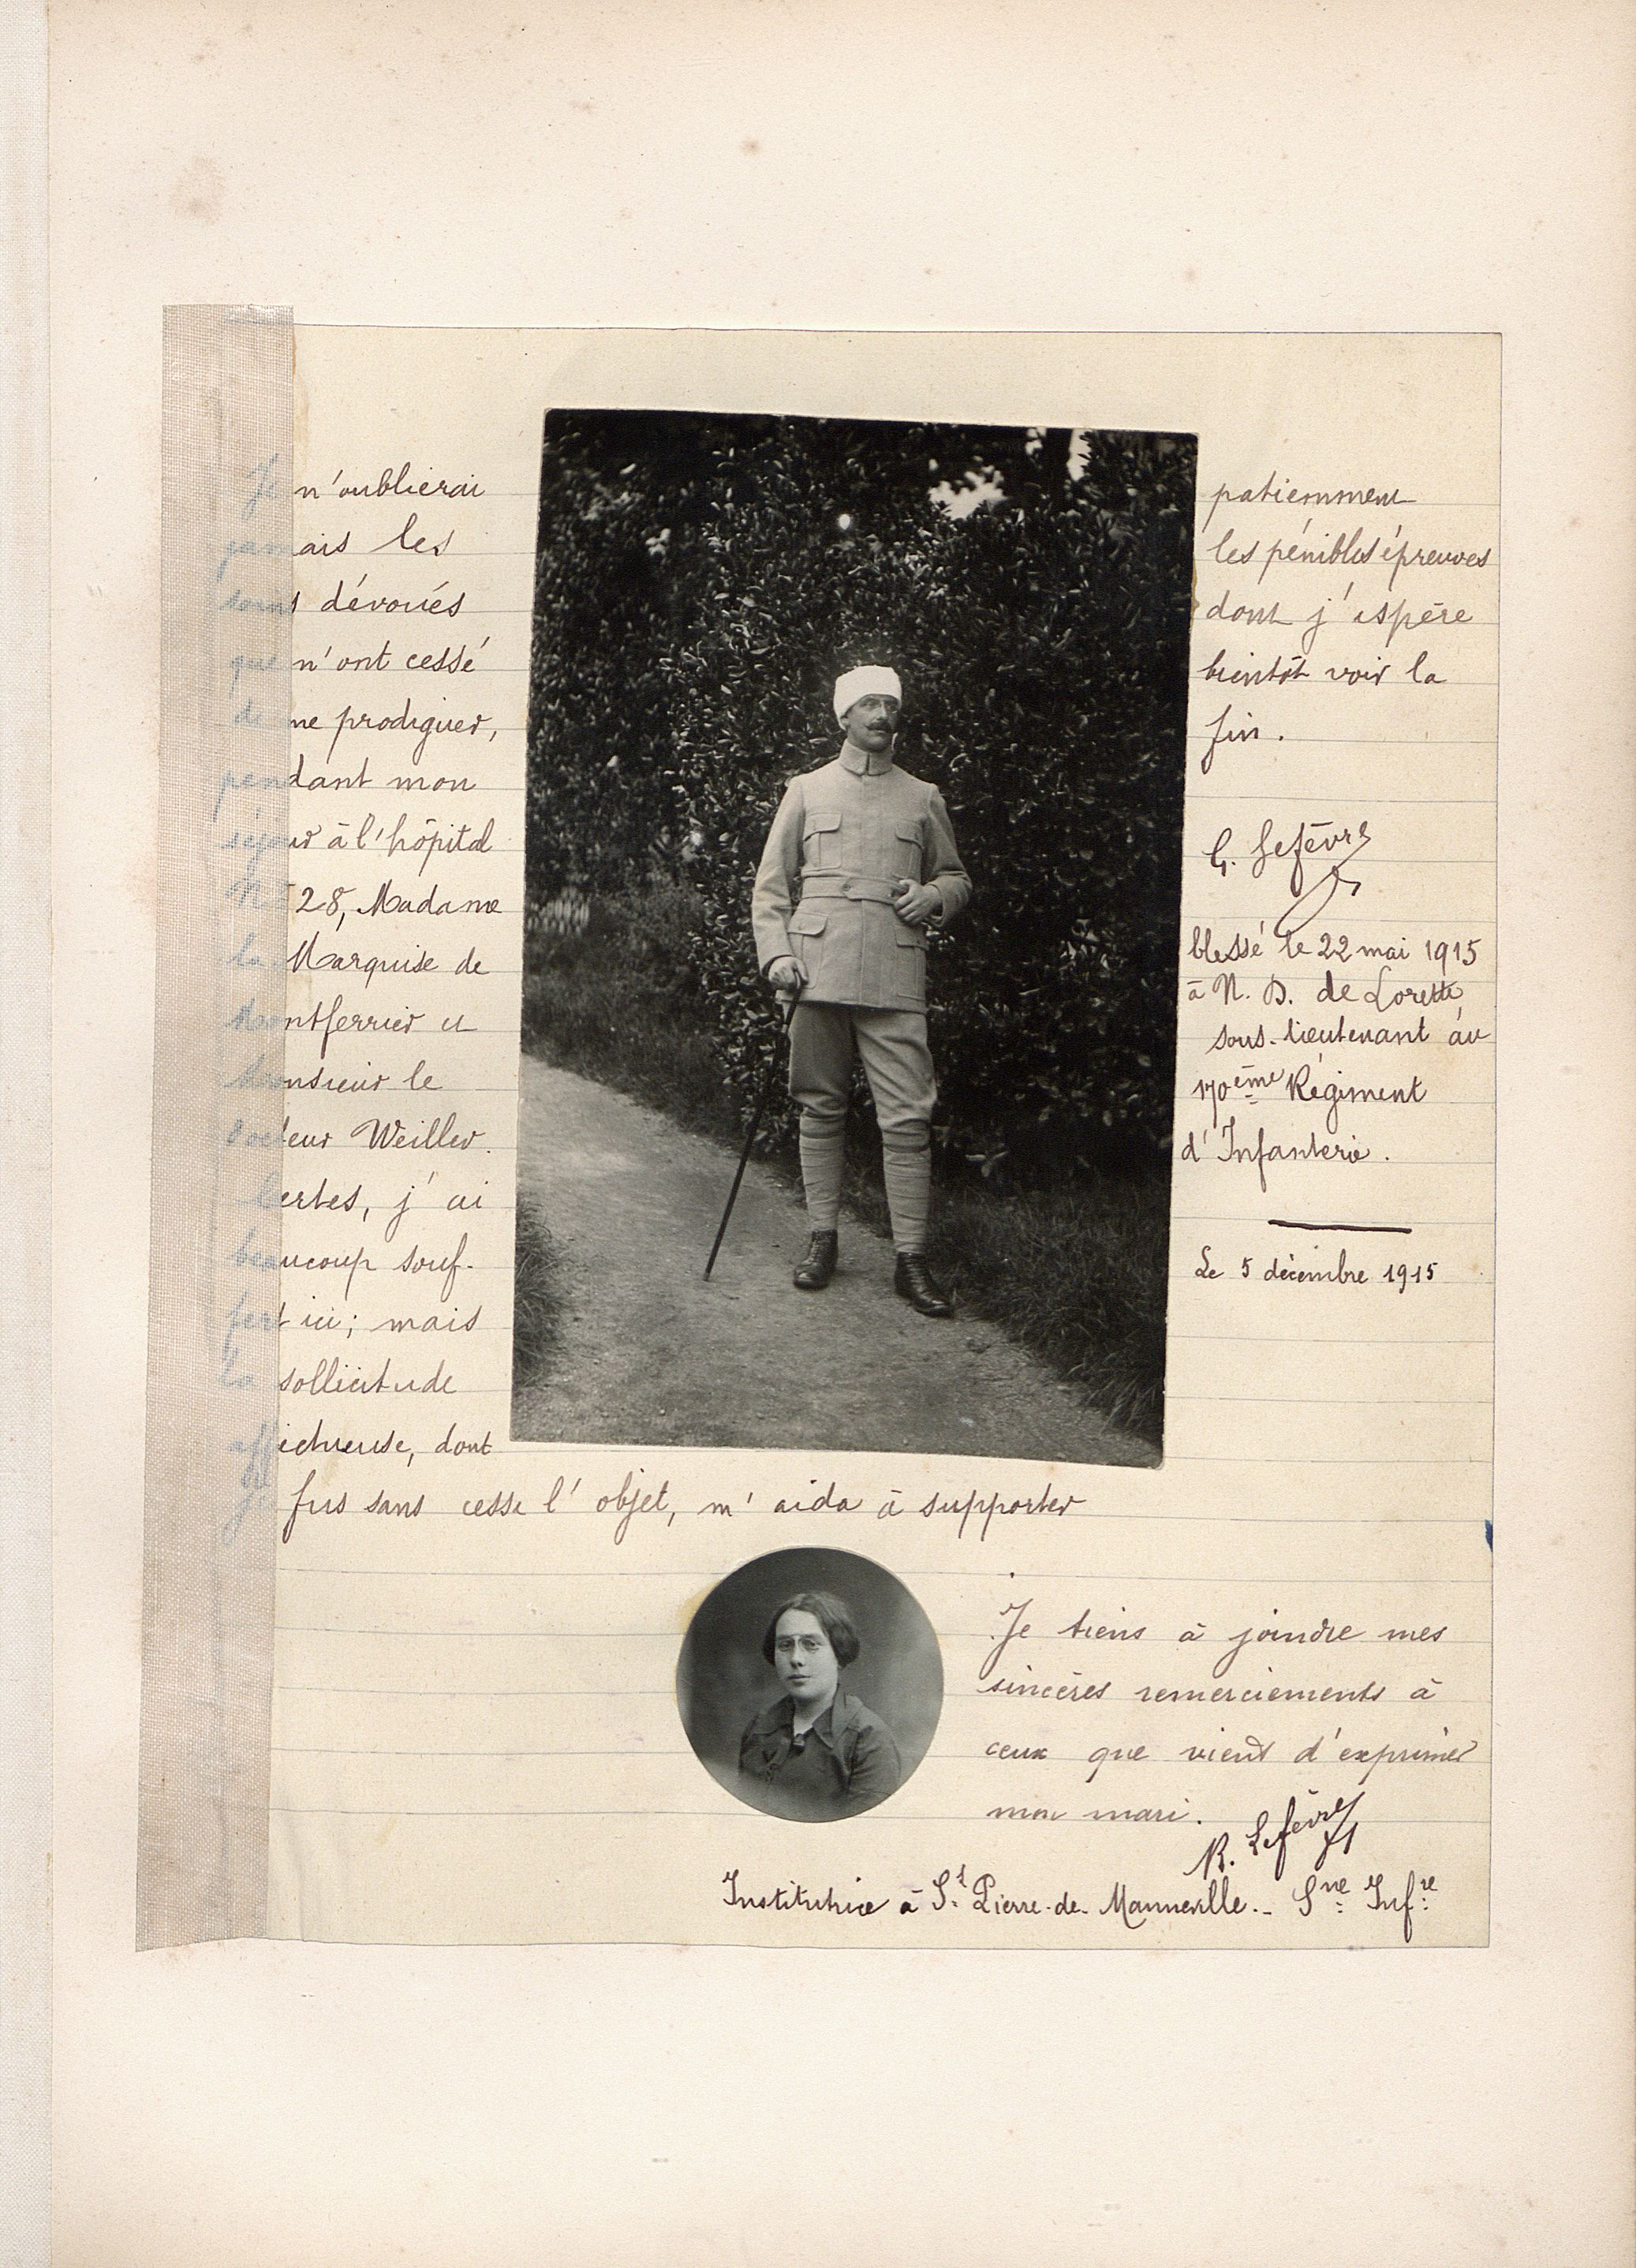 Je n'oublierai
jamais les
soins dévoués
que n'ont cessé
de me prodiguer,
pendant mon
séjour à l'hôpital
N° 28, Madame
la Marquise de
Montferrier et
Monsieur le
Docteur Weiller.
Certes, j'ai
beaucoup souf-
fert ici; mais
la sollicitude
affectueuse, dont
je fus sans cesse l'objet, m'aida à supporter
patiemment
les pénibles épreuves
dont j'espère
bientôt voir la
fin.
G. Lefèvre
blessé le 22 mai 1915
à N. D. de Lorette
sous-lieutenant au
170ème Régiment
d'Infanterie.
Le 5 décembre 1915
Je tiens à joindre mes
sincères remerciements à
ceux que vient d'exprimer
mon mari.
R. Lefèvre
Institutrice à St. Pierre-de-Manneville.- Sne Infre